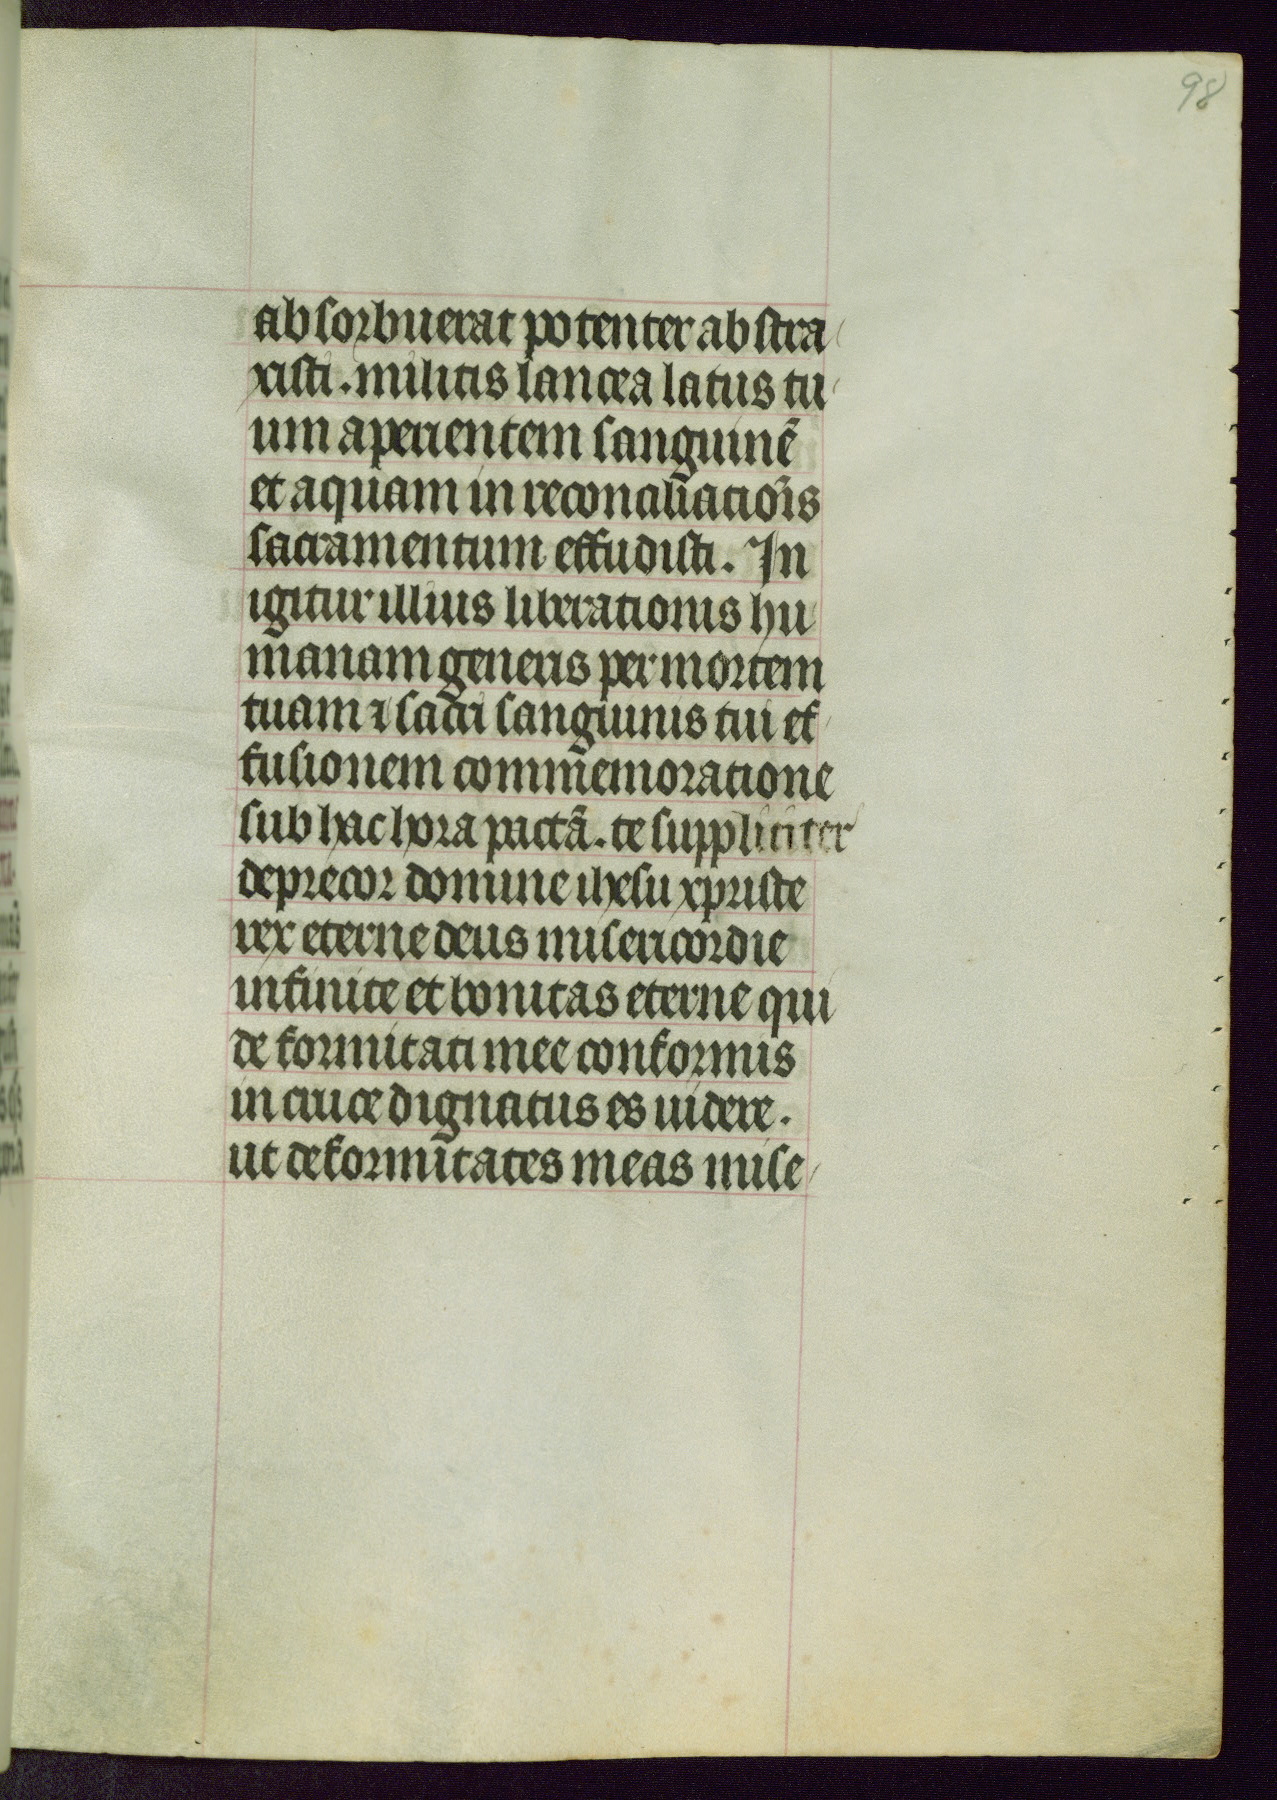 98
absorbuerat potenter abstra
xisti. militis lancea latus tu
um aperientem sanguinē
et aquam in reconciliatiōis
sacramentum effudisti. In
igitur illius liberationis hu
manam generis per mortem
tuam ⁊ sacri sanguinis tui ef
fusionem commemoratione
sub hac hora pactā. te suppliciter
deprecor domine ihesu xpriste
rex eterne deus misericordie
infinite et bonitas eterne qui
deformitati mee conformis
in cruce dignatus es uidere.
ut deformitates meas mise